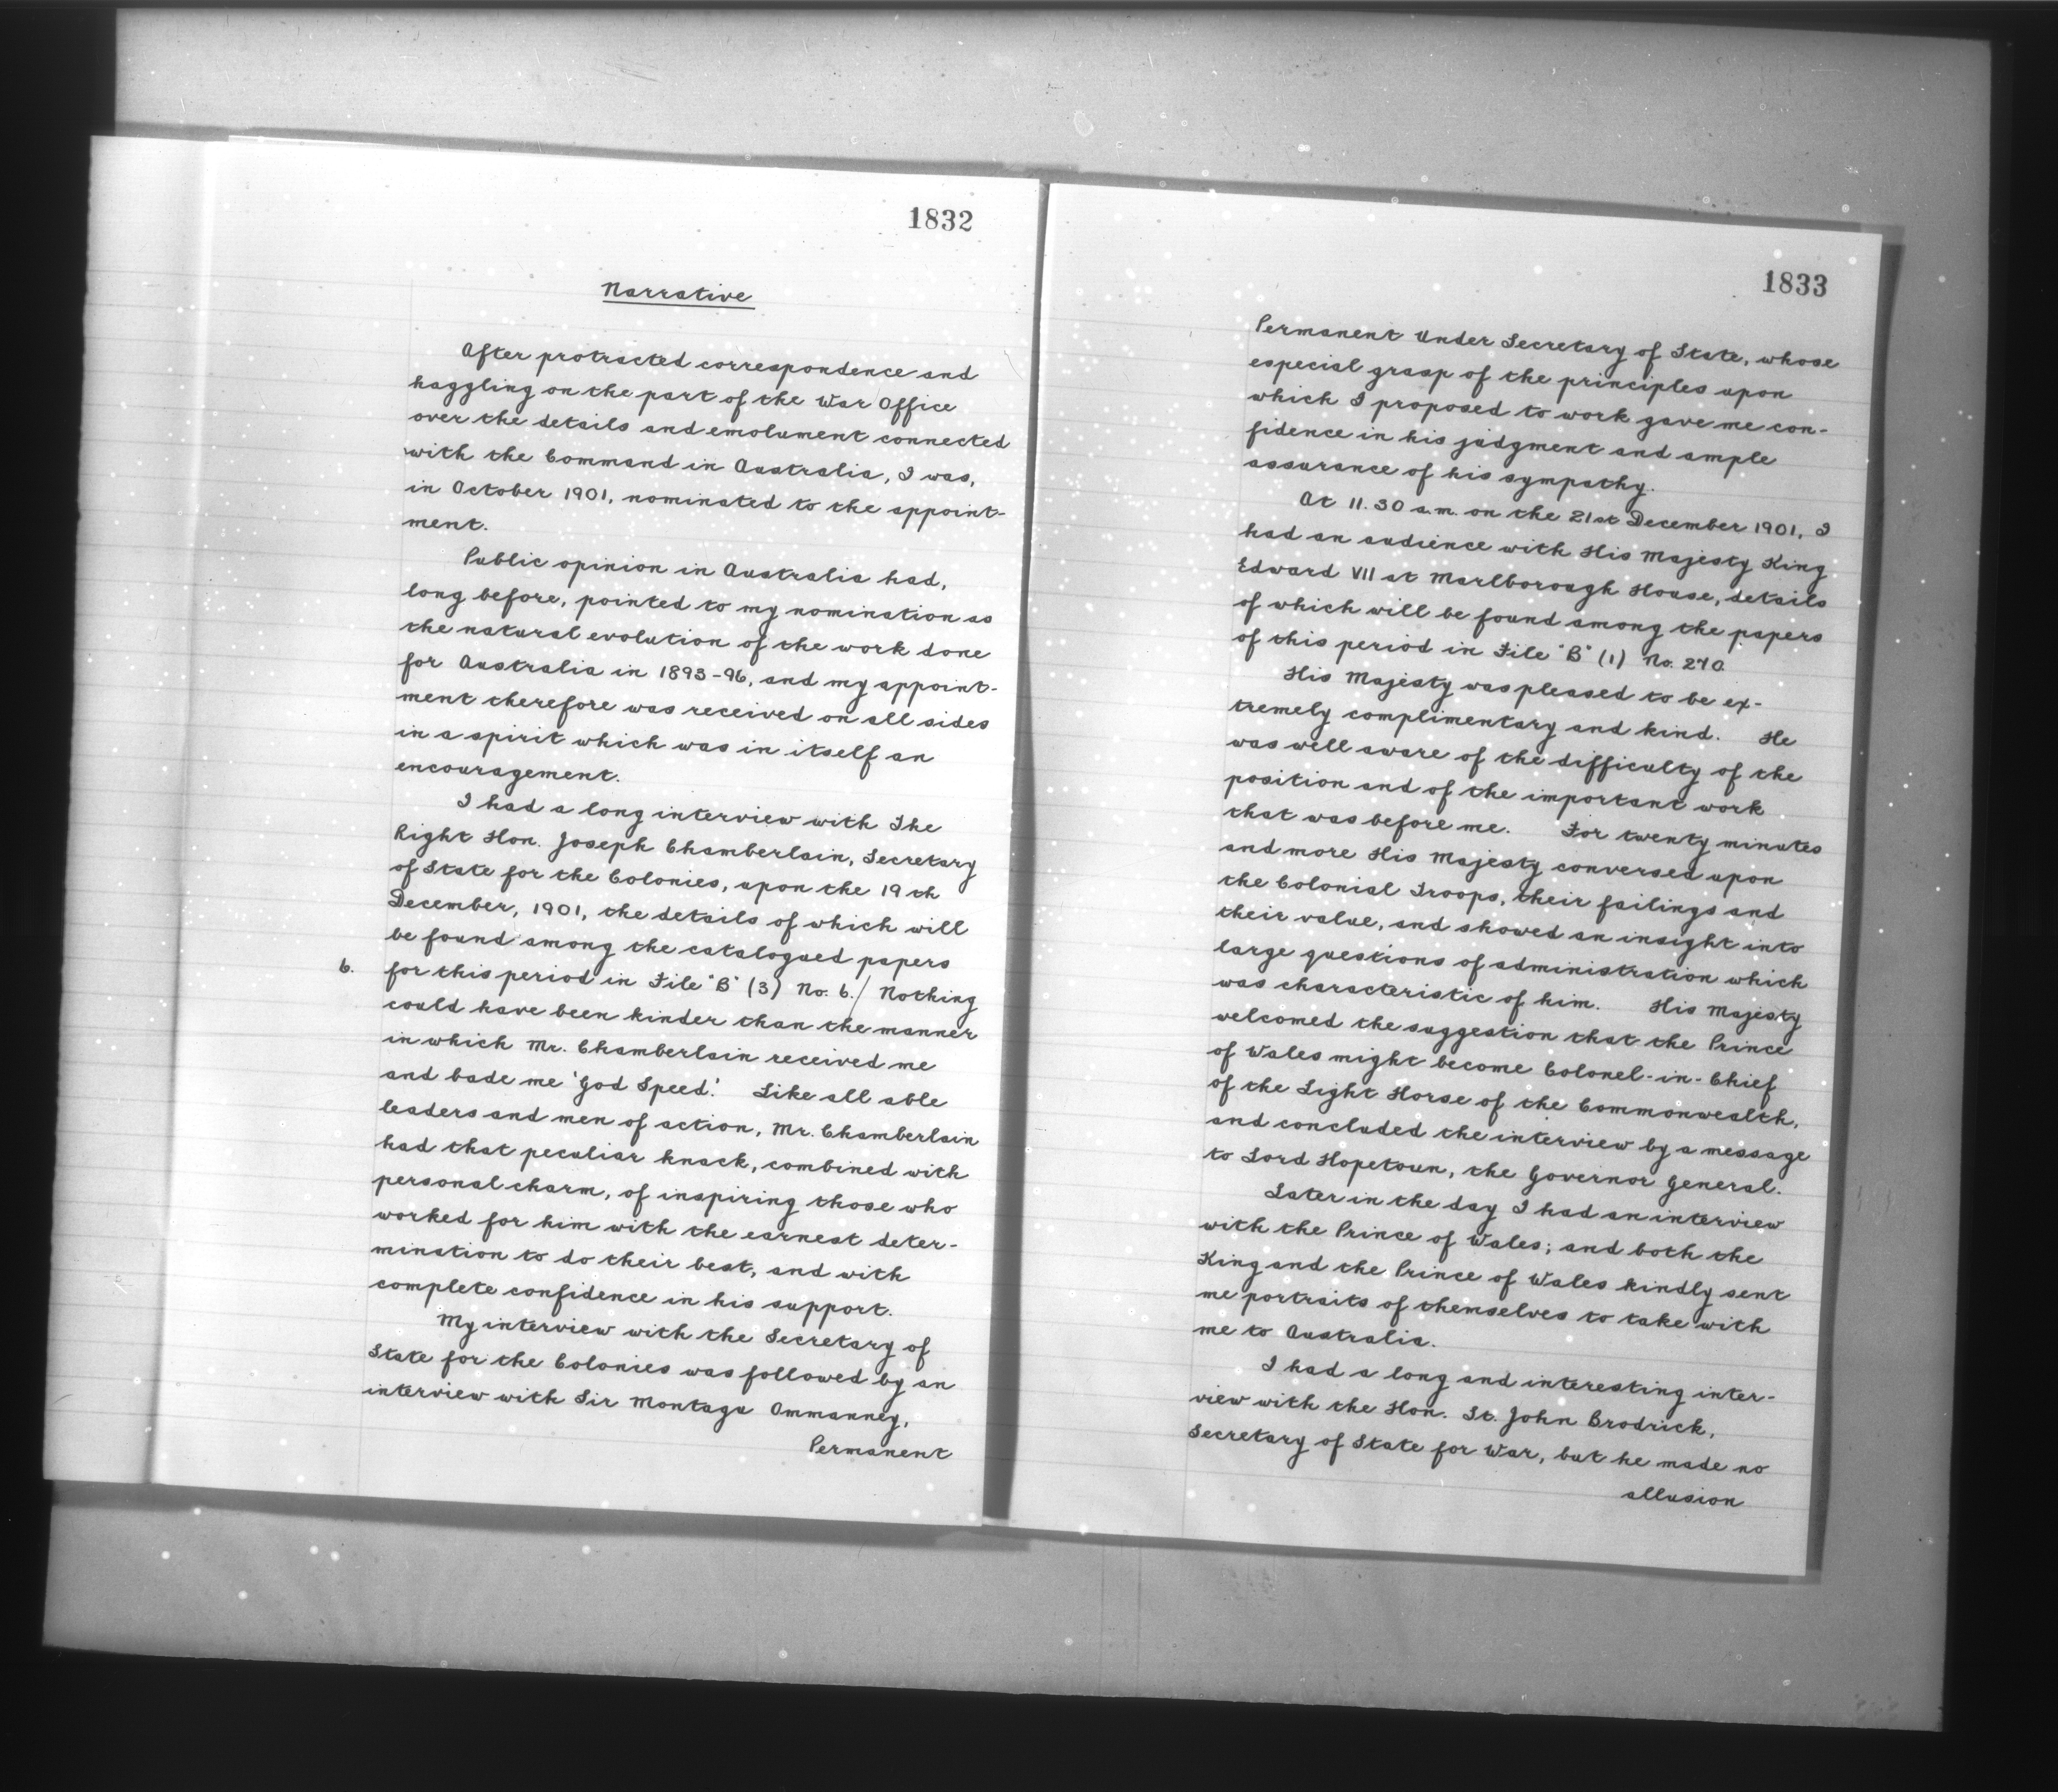 1832
Narrative
After protracted correspondence and
haggling on the part of the War Office
over the details and emolument connected
with the Command in Australia, I was,
in October 1901, nominated to the appoint-
ment.
Public opinion in Australia had,
long before, pointed to my nomination as
the natural evolution of the work done
for Australia in 1893-96, and my appoint-
ment therefore was received on all sides
in a spirit which was in itself an
encouragement.
I had a long interview with The
Right Hon. Joseph Chamberlain, Secretary
of State for the Colonies, upon the 19th
December, 1901, the details of which will
be found among the catalogued papers
6. for this period in File "B" (3) No. 6./ Nothing
could have been kinder than the manner
in which Mr. Chamberlain received me
and bade me 'God Speed'. Like all able
leaders and men of action, Mr. Chamberlain
had that peculiar knack, combined with
personal charm, of inspiring those who
worked for him with the earnest deter-
mination to do their best, and with
complete confidence in his support.
My interview with the Secretary of
State for the Colonies was followed by an
interview with Sir Montagu Ommanney,
Permanent
1833
Permanent Under Secretary of State, whose
especial grasp of the principles upon
which I proposed to work gave me con-
fidence in his judgment and ample
assurance of his sympathy.
At 11.30 a.m. on the 21st December 1901, I
had an audience with His Majesty King
Edward VII at Marlborough House, details
of which will be found among the papers
of this period in File "B" (1) No. 270
His Majesty was pleased to be ex-
tremely complimentary and kind. He
was well aware of the difficulty of the
position and of the important work
that was before me. For twenty minutes
and more His Majesty conversed upon
the Colonial Troops, their failings and
their value, and showed an insight into
large questions of administration which
was characteristic of him. His Majesty
welcomed the suggestion that the Prince
of Wales might become Colonel-in-Chief
of the Light Horse of the Commonwealth,
and concluded the interview by a message
to Lord Hopetoun, the Governor General.
Later in the day I had an interview
with the Prince of Wales; and both the
King and the Prince of Wales kindly sent
me portraits of themselves to take with
me to Australia.
I had a long and interesting inter-
view with the Hon. St. John Brodrick,
Secretary of State for War, but he made no
allusion